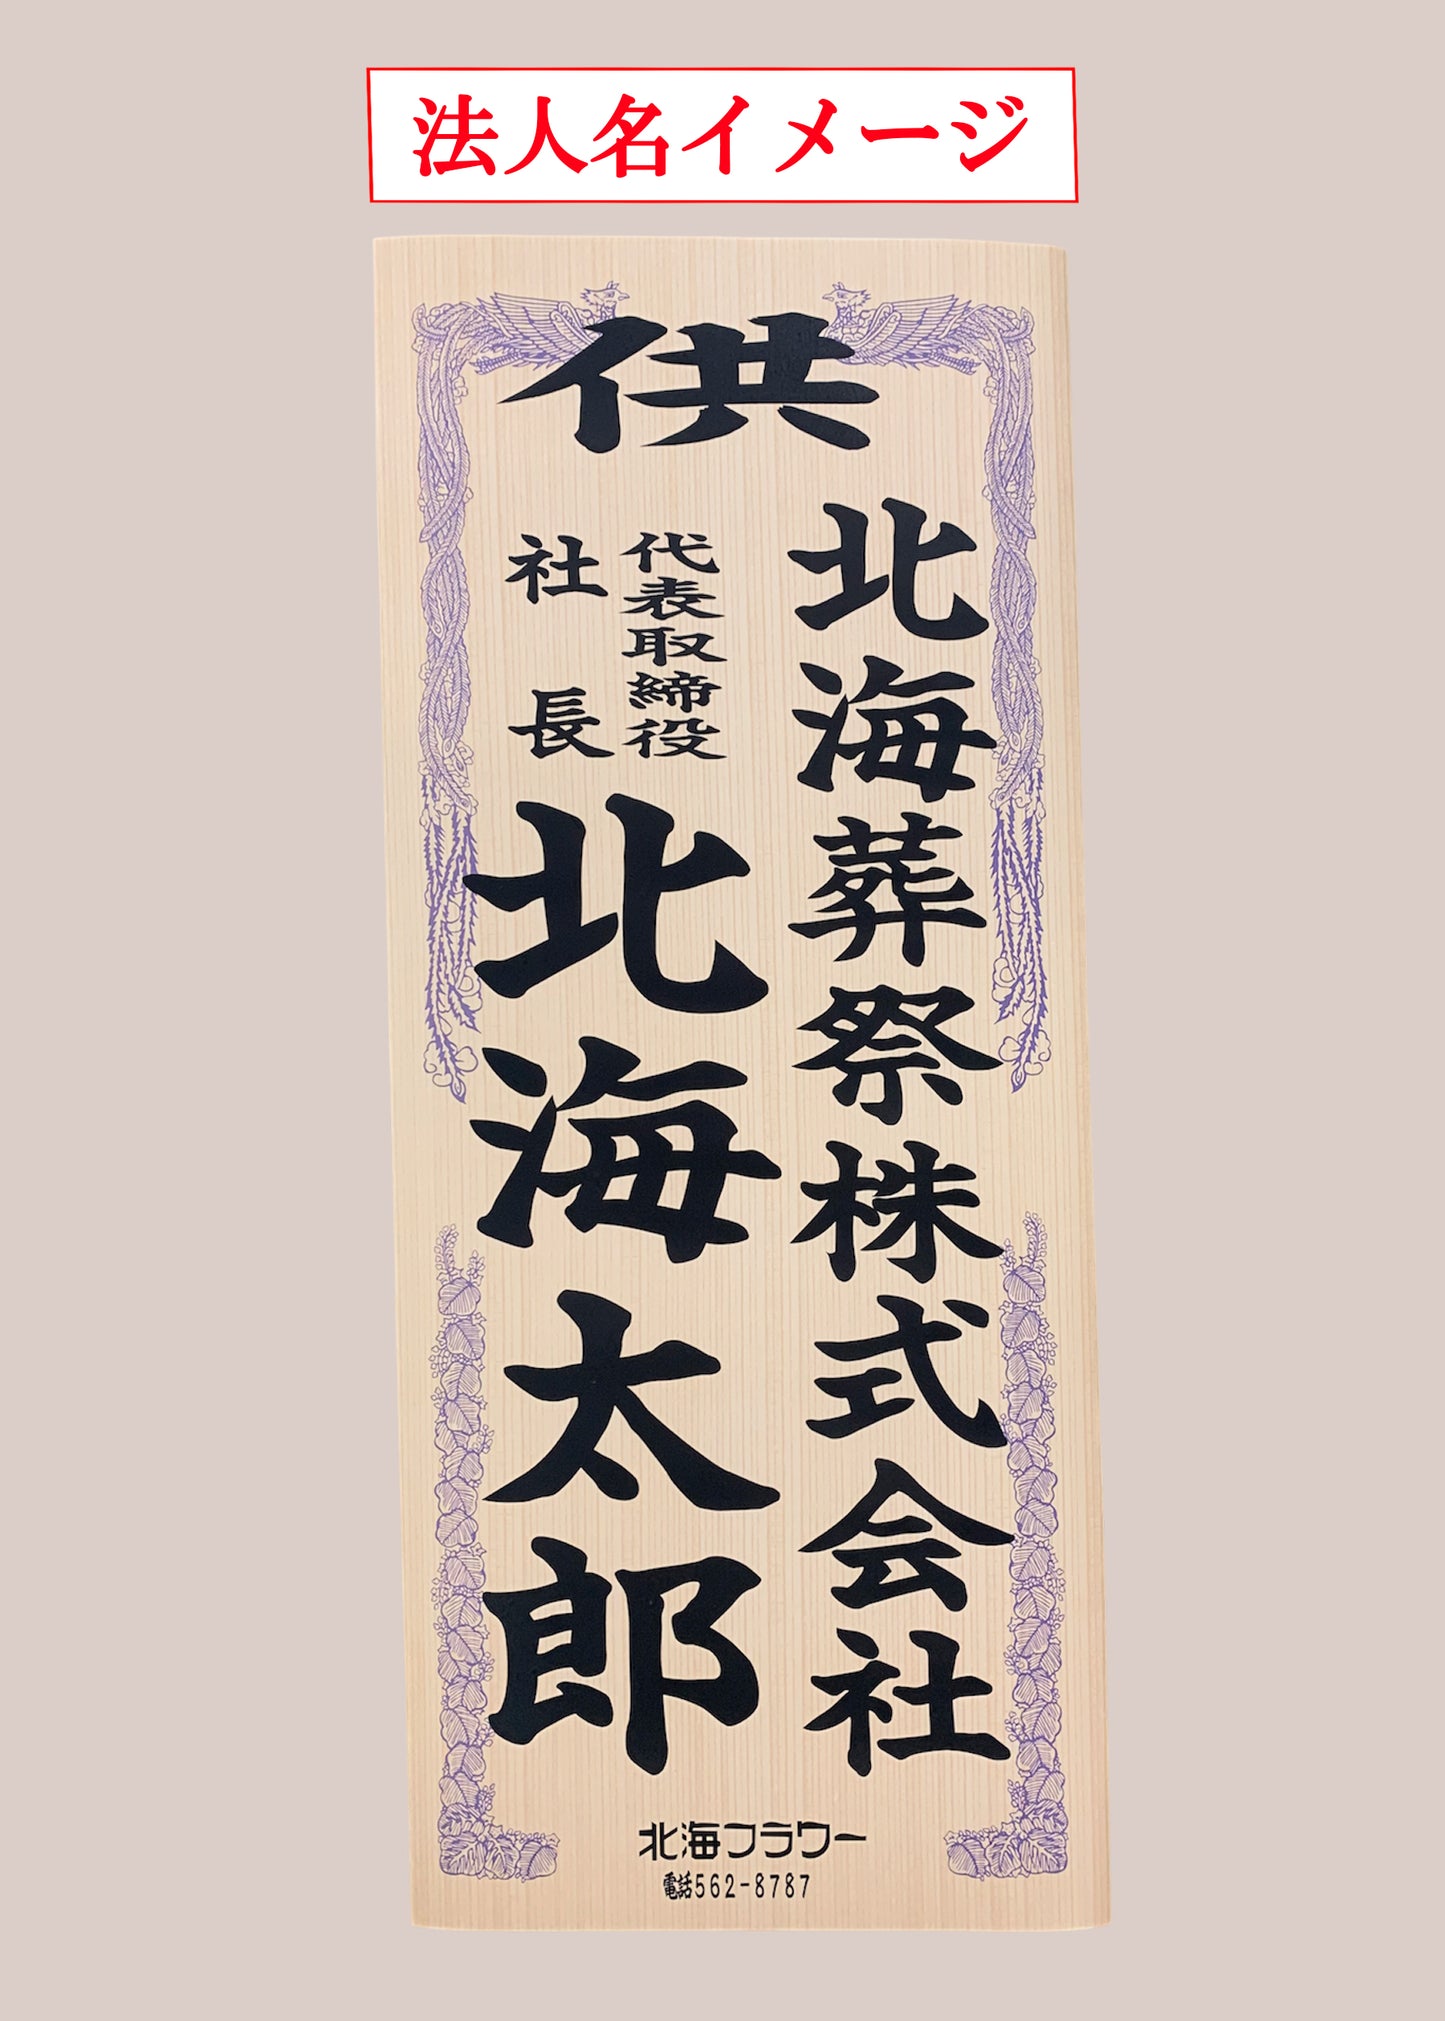 法人名イメージ
供
北海葬祭株式会社
代表取締役
社長
北海太郎
北海フラワー
電話562-8787